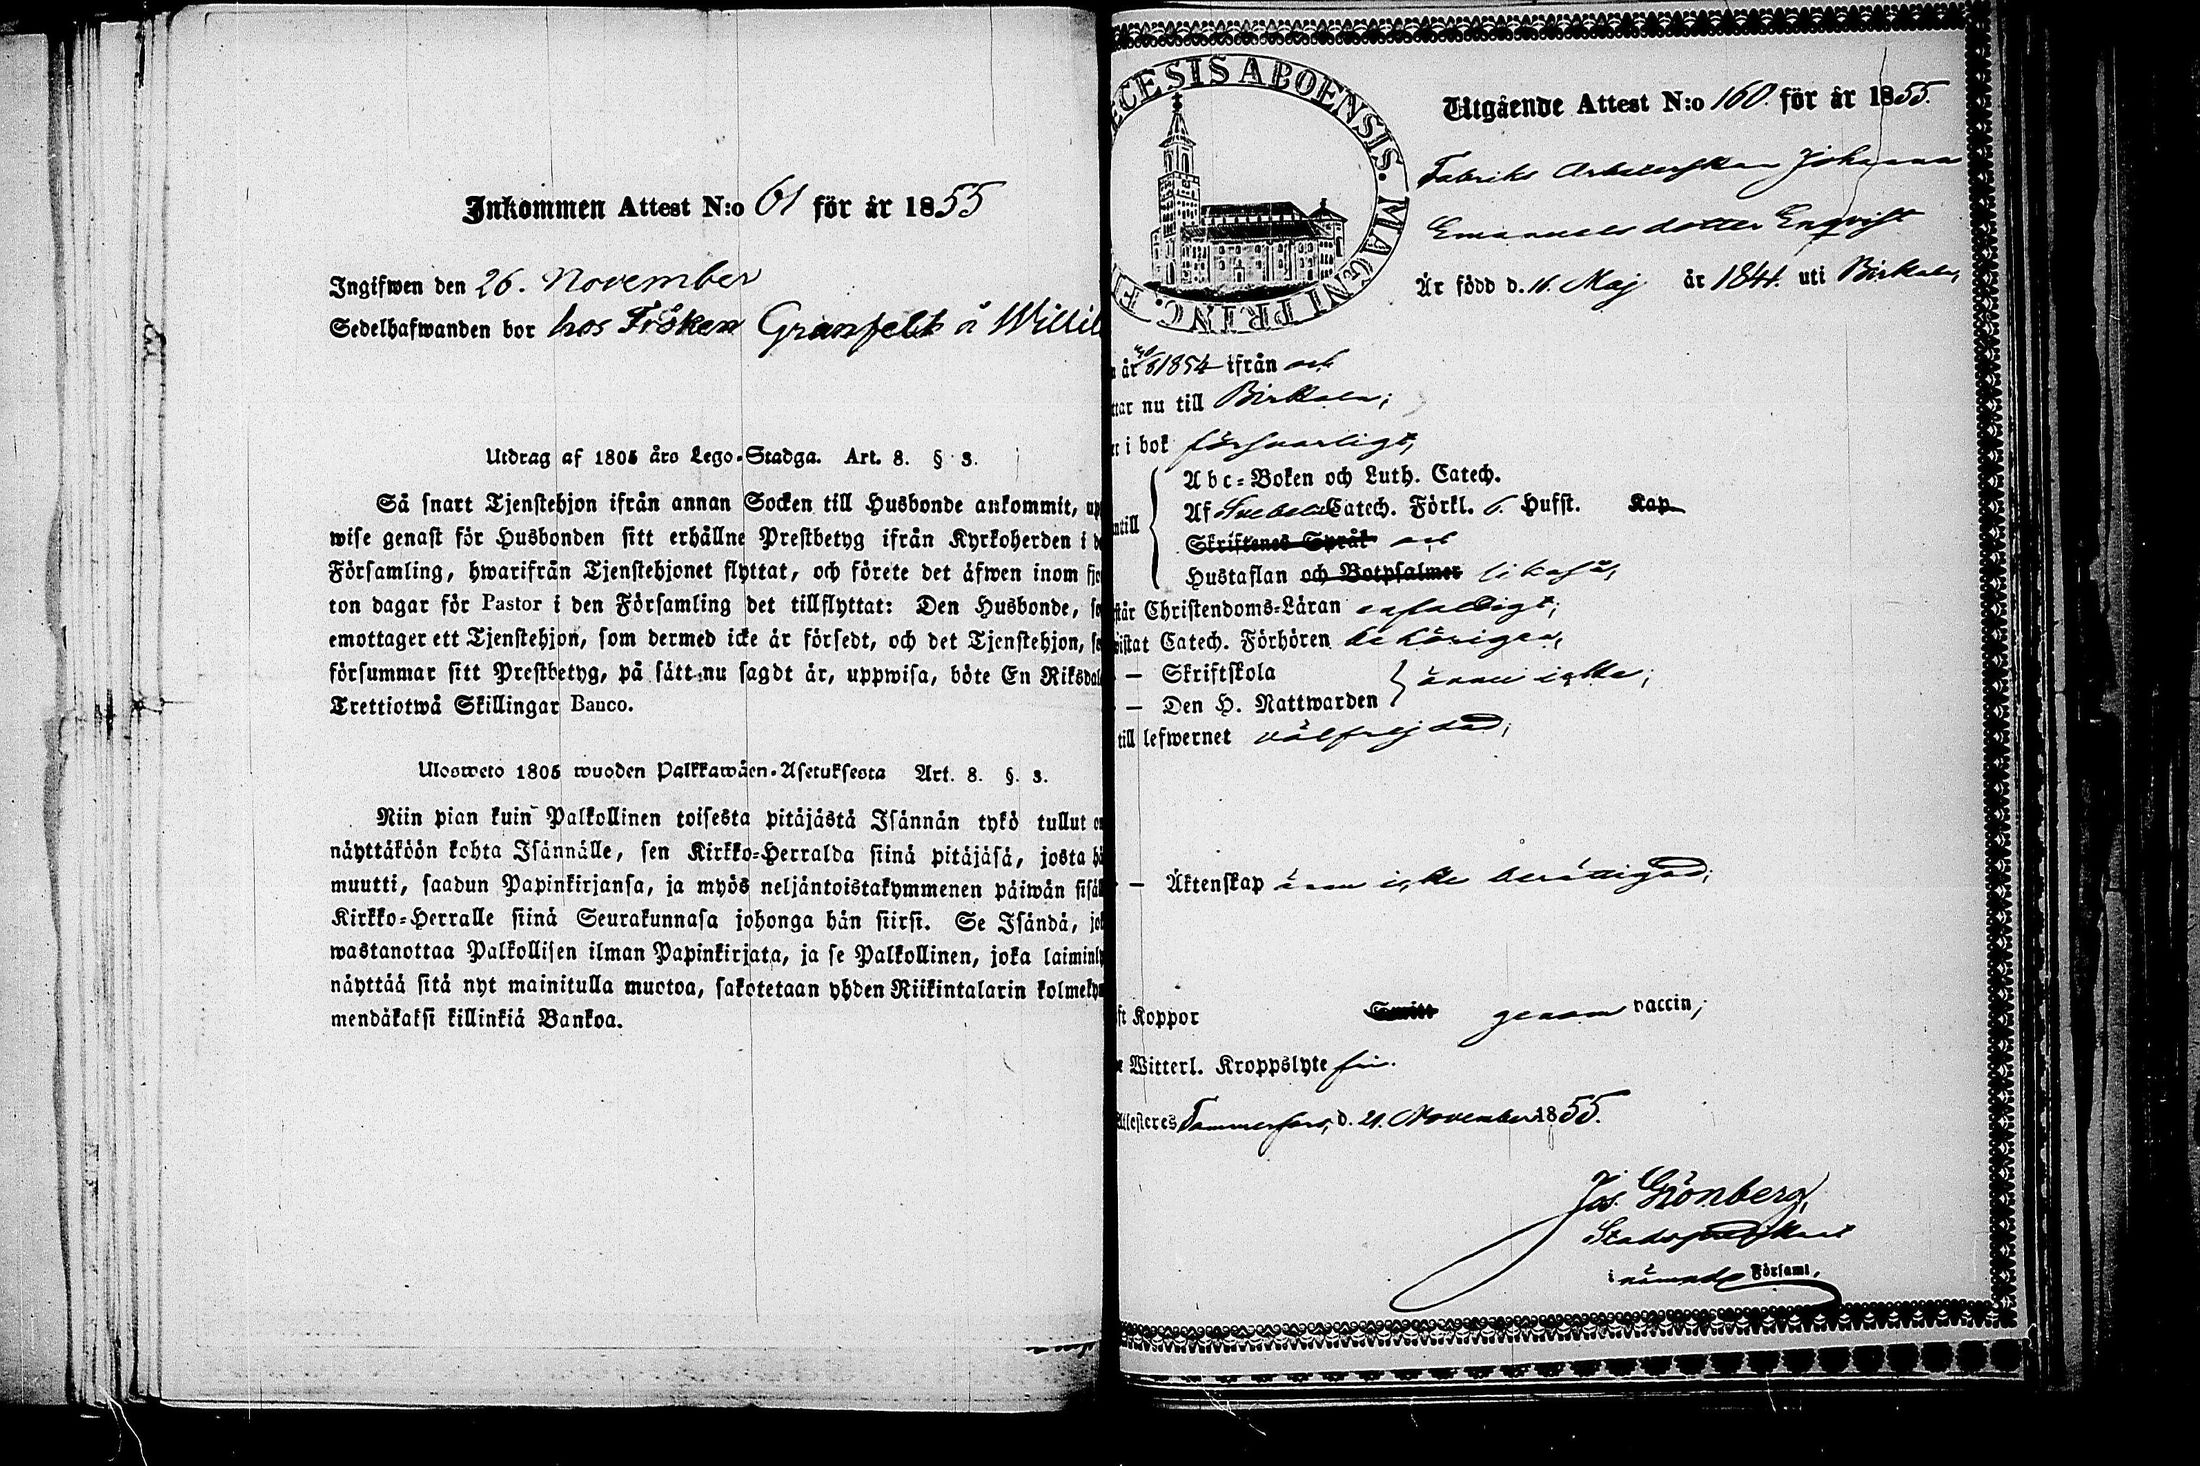 Inkommen Attest N:o 61 för år 1855
Ingifwen den 26. November
Sedelhafwanden bor hos Fröken Granfelt å Willil
Utdrag af 1805 års Lego-Stadga. Art. 8. § 3.
Så snart Tjenstehjon ifrån annan Socken till Husbonde ankommit, up
wise genast för Husbonden sitt erhållne Prestbetyg ifrån Kyrkoherden i d
Församling, hwarifrån Tjenstehjonet flyttat, och förete det äfwen inom fjo
ton dagar för Pastor i den Församling det tillflyttat: Den Husbonde, so
emottager ett Tjenstehjon, som dermed icke är försedt, och det Tjenstehjon, so
försummar sitt Prestbetyg, på sätt nu sagdt är, uppwisa, böte En Riksdal
Trettiotwå Skillingar Banco.
Ulosweto 1805 wuoden Palkkawäen-Asetuksesta Art. 8. §. 3.
Niin pian kuin Palkollinen toisesta pitäjästä Isännän tykö tullut on
näyttäköön kohta Isännälle, sen Kirkko-Herralda siinä pitäjäsä, josta hä
muutti, saadun Papinkirjansa, ja myös neljäntoistakymmenen päiwän sisäl
Kirkko-Herralle siinä Seurakunnasa johonga hän siirsi. Se Isändä, jok
wastanottaa Palkollisen ilman Papinkirjata, ja se Palkollinen, joka laiminly
näyttää sitä nyt mainitulla muotoa, sakotetaan yhden Riikintalarin kolmeky
mendäkaksi killinkiä Bankoa.
ECESIS ABOENSIS. MAGNI PRINC. F
Utgående Attest N:o 160. för år 1855.
Fabriks Arbeterskan Johanna
Emanuels dotter Enqvist
Är född d. 16. Maj år 1841. uti Birkala,
år 1854 ifrån och
ttar nu till Birkala;
r i bok försvarligt,
Abc-Boken och Luth. Catech.
ntill Af Svebelii Catech. Förkl. 6. Hufst. Kap
Skriftenes Språk och
Hustaflan och Botpsalmer likaså,
står Christendoms-Läran enfaldigt;
istat Catech. Förhören behörigen,
— Skriftskola
— Den H. Nattwarden ännu icke;
till lefwernet välfrejdad;
— Äktenskap ännu icke berättigad;
ft Koppor Smitt genom vaccin;
e Witterl. Kroppslyte fri.
Attesteres Tammerfors, d. 21. November 1855.
Jos. Grönberg,
Stadspredikant
i nämnde Församl.